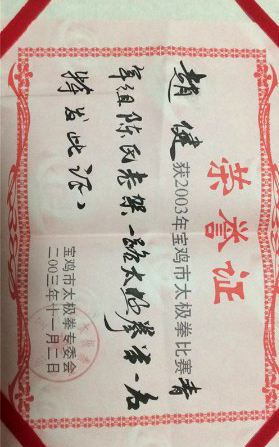 荣誉证
赵健获2003年宝鸡市太极拳比赛青
年组陈氏老架一路太极拳第一名
特发此证
宝鸡市太极拳专委会
二00三年十一月二日